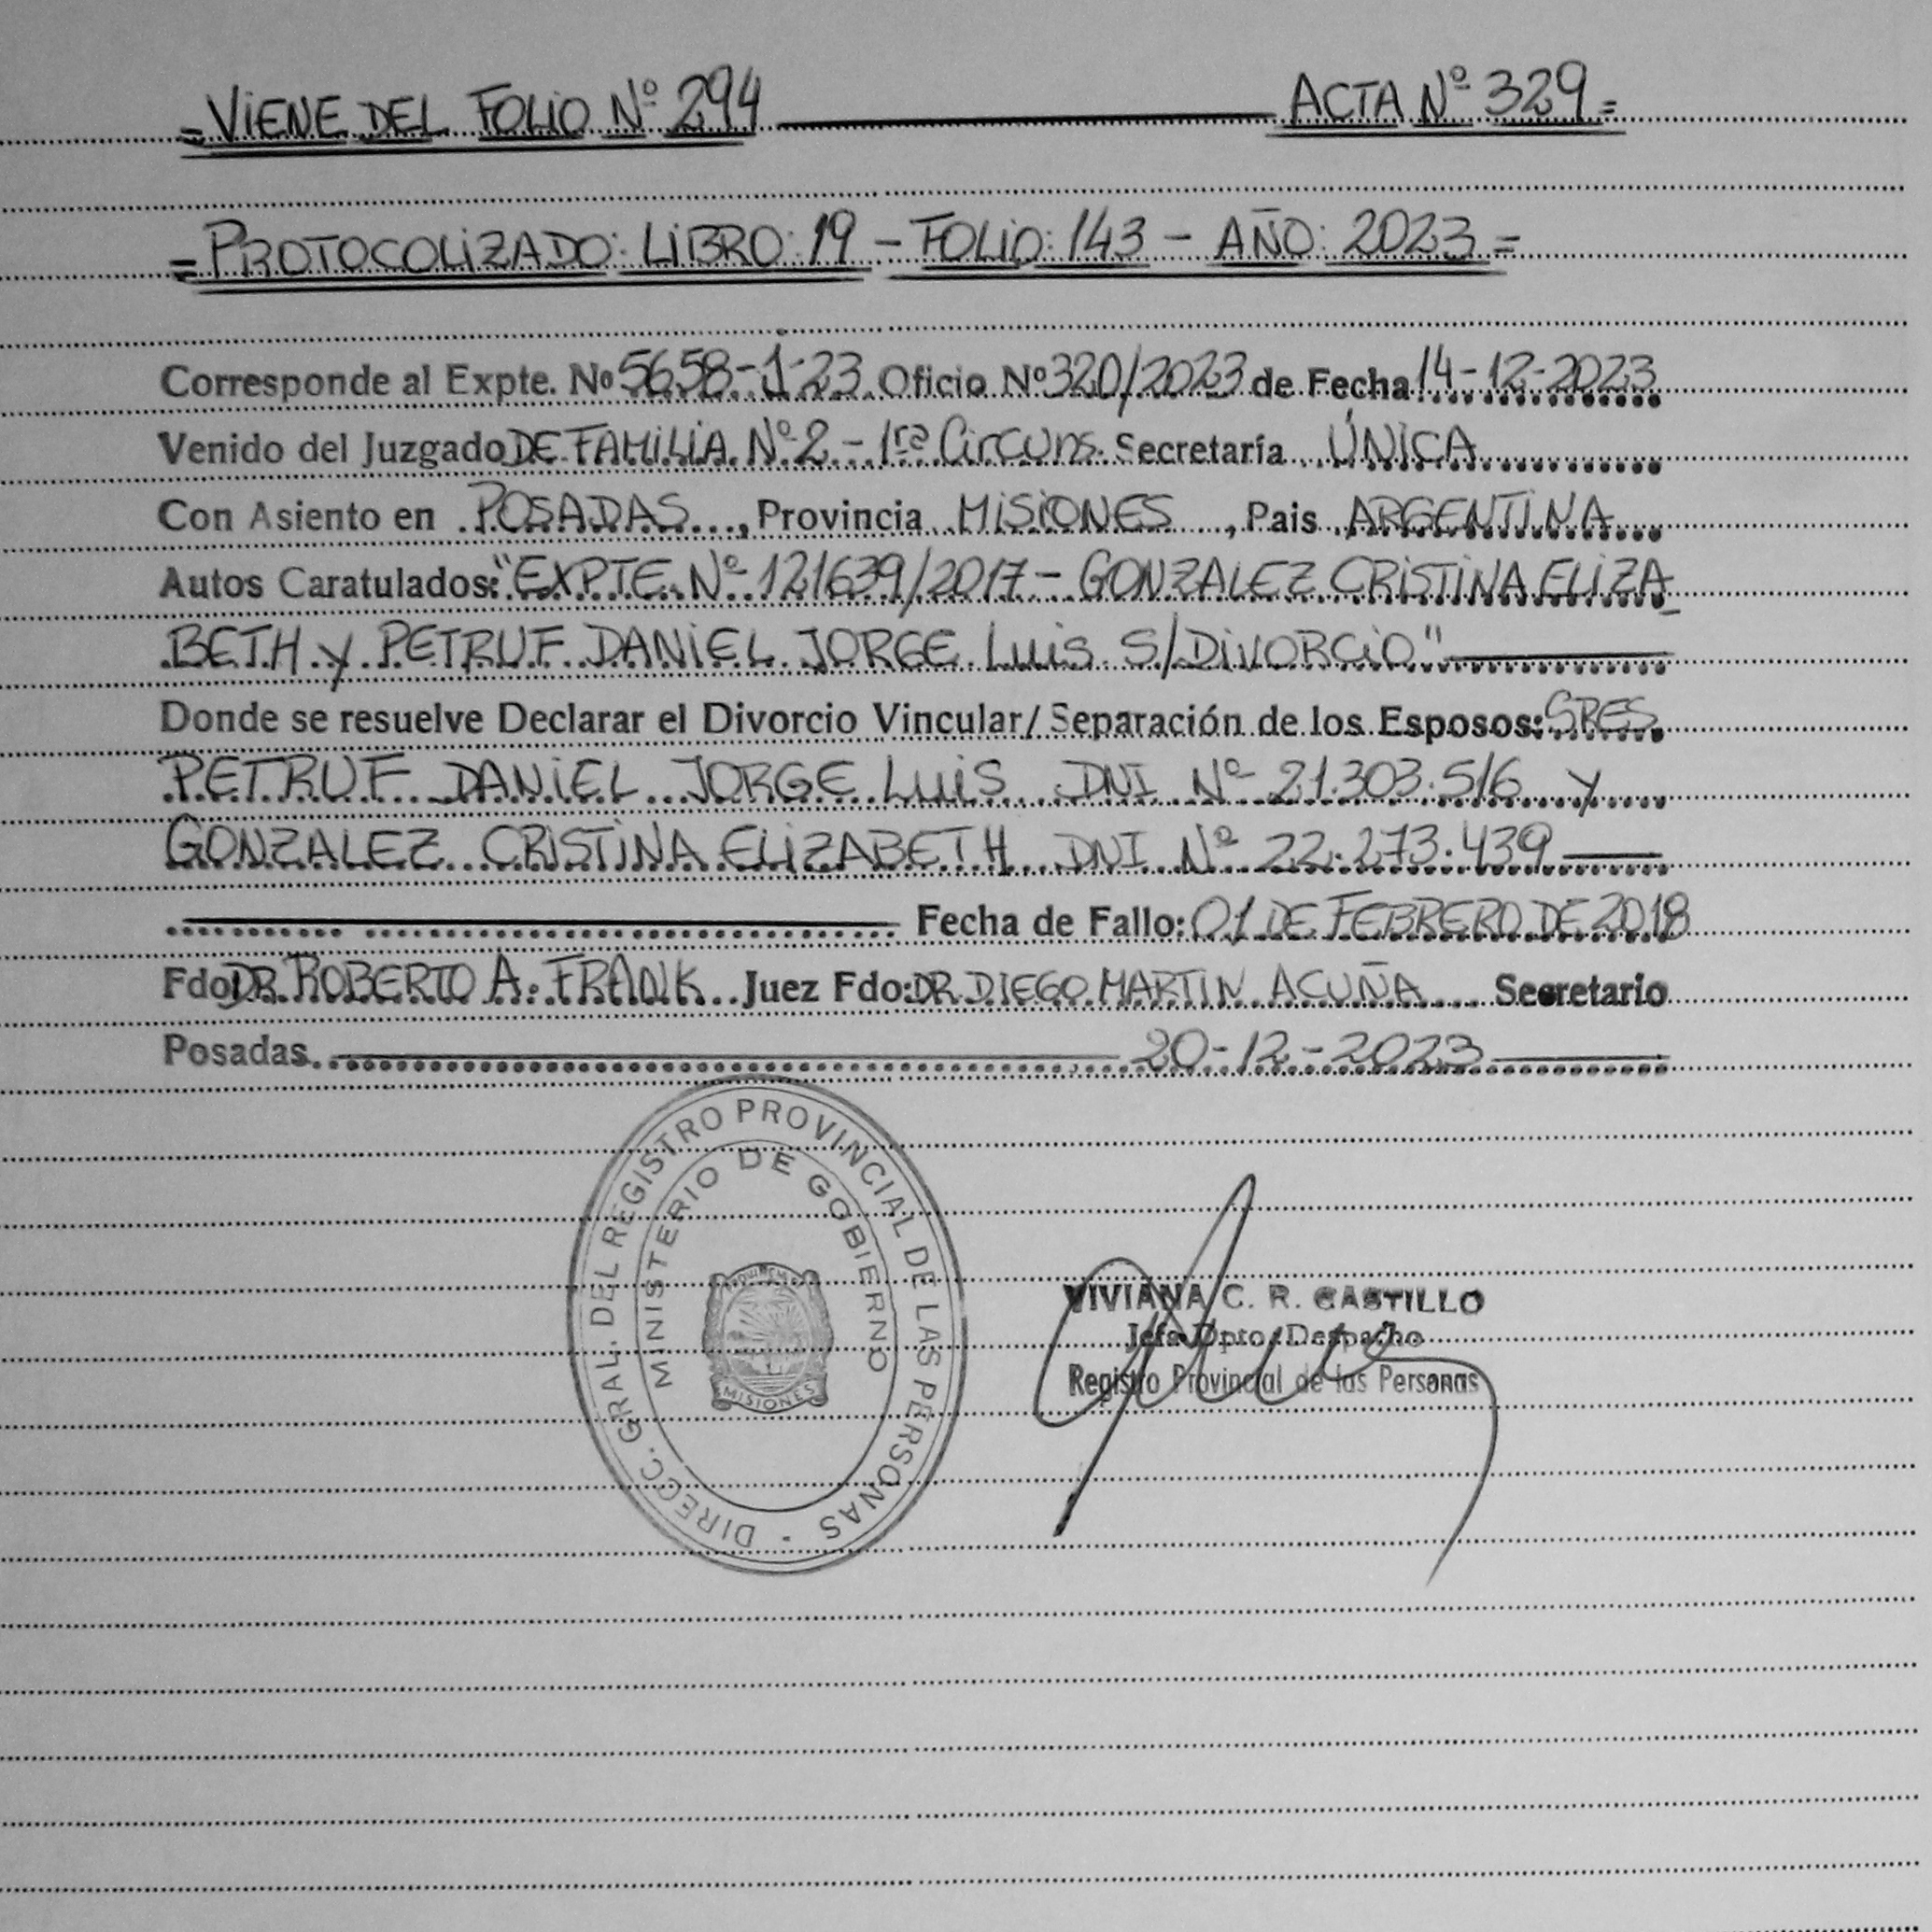 = VIENE DEL FOLIO Nº 294 ACTA Nº 329 =
= PROTOCOLIZADO: LIBRO: 19 - FOLIO: 143 - AÑO: 2023 =
Corresponde al Expte. Nº 5658-J-23 Oficio Nº 320/2023 de Fecha 14-12-2023
Venido del Juzgado DE FAMILIA Nº 2 - 1ra Circuns. Secretaría ÚNICA
Con Asiento en POSADAS, Provincia MISIONES, Pais ARGENTINA
Autos Caratulados: "EXPTE. Nº 121639/2017 - GONZALEZ CRISTINA ELIZA_
BETH y PETRUF DANIEL JORGE LUIS S/DIVORCIO"
Donde se resuelve Declarar el Divorcio Vincular/ Separación de los Esposos: SRES.
PETRUF DANIEL JORGE LUIS DNI Nº 21.303.516 y
GONZALEZ CRISTINA ELIZABETH DNI Nº 22.273.439
Fecha de Fallo: 01 DE FEBRERO DE 2018
Fdo DR. ROBERTO A. FRANK Juez Fdo: DR. DIEGO MARTIN ACUÑA Secretario
Posadas. 20-12-2023
DIRECC. GRAL. DEL REGISTRO PROVINCIAL DE LAS PERSONAS -
MINISTERIO DE GOBIERNO
MISIONES
VIVIANA C. R. CASTILLO
Jefa Dpto. Despacho
Registro Provincial de las Personas